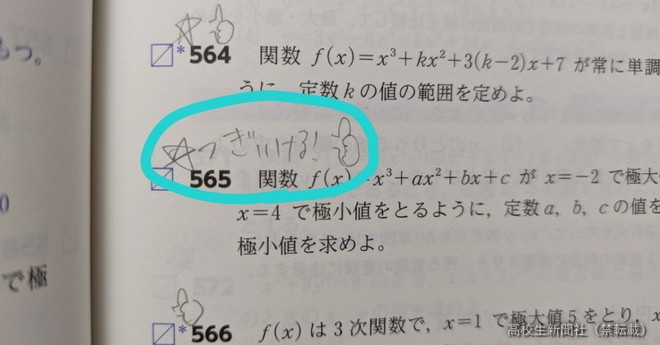 もつ。
*564 関数 f(x)=x³+kx²+3(k-2)x+7 が常に単調
うに，定数kの値の範囲を定めよ。
☆つぎいける!
565 関数 f(x)=x³+ax²+bx+c が x=-2 で極大
x=4 で極小値をとるように，定数a，b，cの値を
極小値を求めよ。
で極
572
*566 f(x) は3次関数で，x=1 で極大値5をとり，x
高校生新聞社（禁転載）